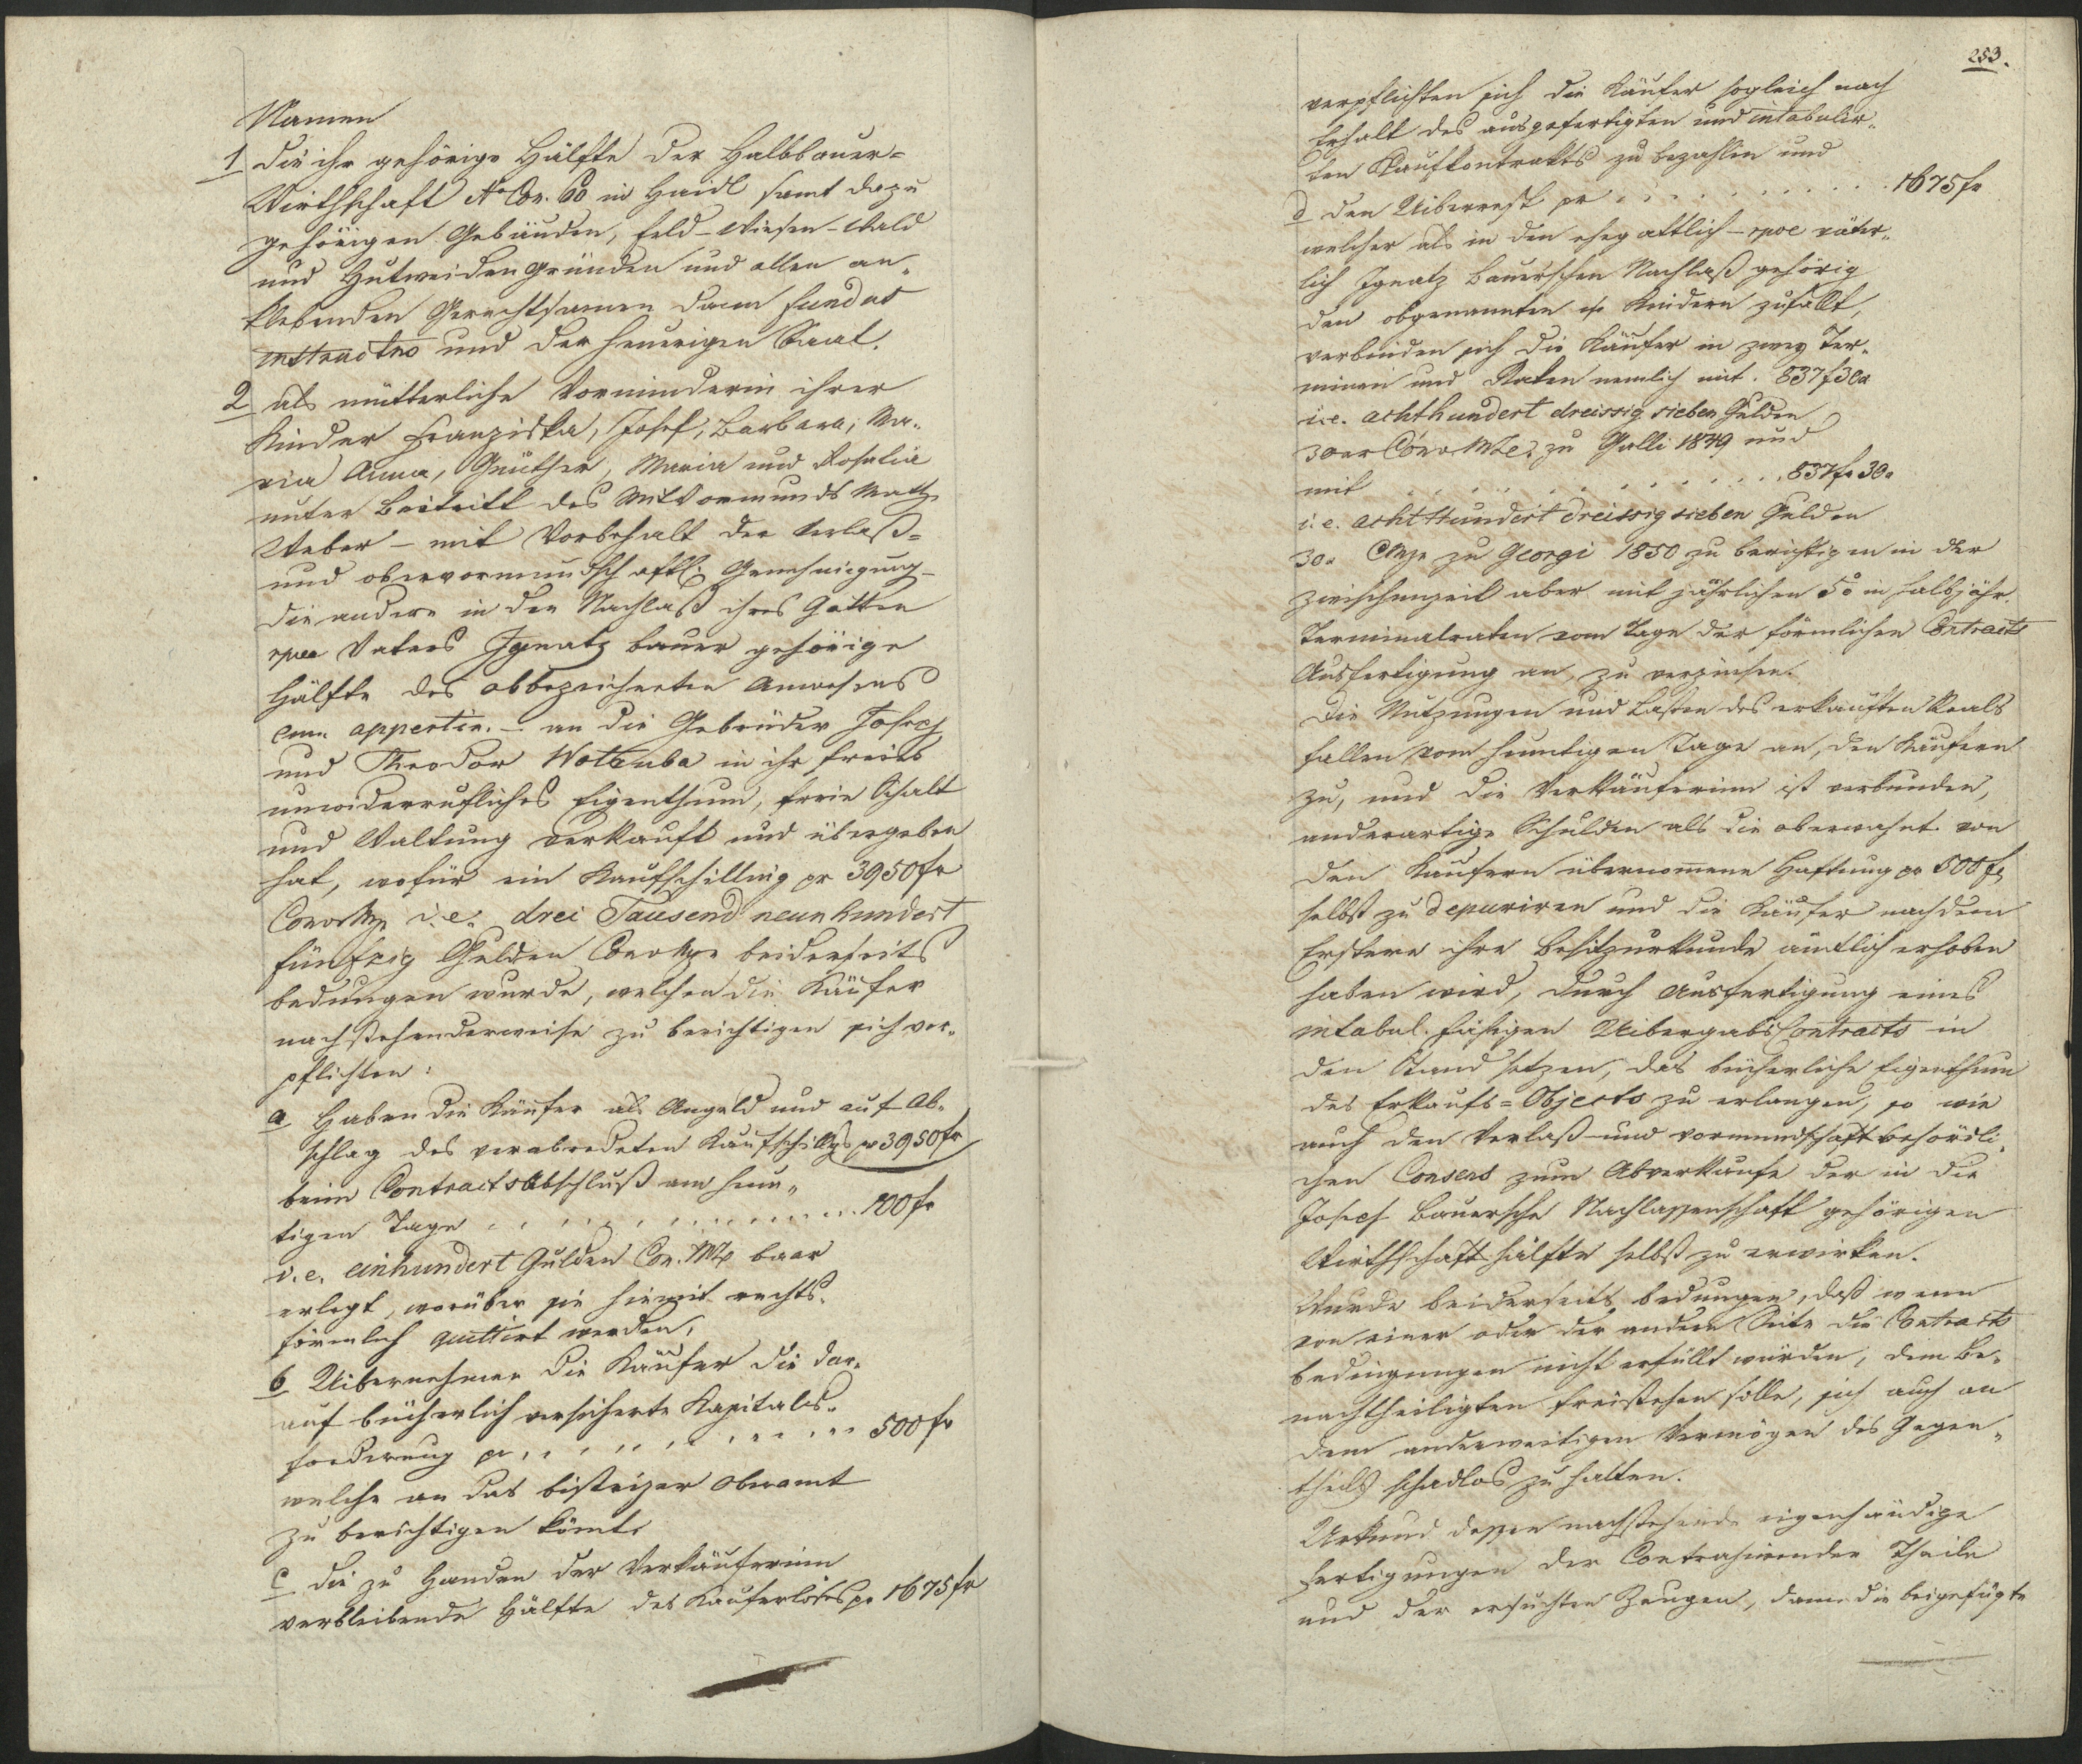 Namen
1 die ihr gehörige Hälfte der Halbbauer-
Wirthschaft No Con. 60 in Haidl samt dazu
gehörigen Gebäuden, Feld- Wiesen- Wald
und Hutweiden Gründen und allen an-
klebenden Gerechtsamen dann fundus
instructus und der heurigen Saat.
2 als mütterliche Vorminderin ihrer
Kinder Franziska, Josef, Barbara, Ma-
ria Anna, Günther, Maria und Rosalia
unter Beitritt des Mitvormunds Math.
Weber – mit Vorbehalt der Verlaß-
und obervormundschaftl. Genehmigung –
die andere in den Nachlaß ihres Gatten
rpve Vaters Ignatz Bauer gehörige
Hälfte des obbezeichneten Anwesens
cum appertin. – an die Gebrüder Josef
und Theodor Wottruba in ihr freies
unwiderrufliches Eigenthum, freie Schalt
und Waltung verkauft und übergeben
hat, wofür ein Kaufschilling pr 3950 fr
ConvMze i.e. drei Tausend neunhundert
fünfzig Gulden ConvMze beiderseits
bedungen wurde, welchen die Käufer
nachstehenderweise zu berichtigen sich ver-
pflichten:
a Haben die Käufer als Angeld und auf Ab-
schlag des verabredeten Kaufschillgs pr 3950 fr
beim Contractsabschluß am heu-
tigen Tage . . . . . . . . . . 100 fr
i.e. einhundert Gulden Con. Mze baar
erlegt, worüber sie hiemit rechts-
förmlich quittirt werden,
b Uibernehmen die Käufer die dar-
auf bücherlich versicherte Kapitals-
forderung pr . . . . . . . . . . 500 fr
welche an das bistrizer Oberamt
zu berichtigen kömt.
c die zu Handen der Verkäuferinn
verbleibende Hälfte des Kauferlöses pr 1675 fr
253.
verpflichten sich die Käufer sogleich nach
Erhalt des ausgefertigten und intabulir-
ten Kaufkontrakts zu bezahlen und
d den Uiberrest pr . . . . . . . . . . 1675 fr
welcher als in den ehegattlich – rpve väter-
lich Ignatz Bauer'schen Nachlaß gehörig
den obgenannten Kindern zufällt,
verbinden sich die Käufer in zwey Ter-
minen und Raten nemlich mit . 837 f 30 x
i.e. achthundert dreissig sieben Gulden
30 xr Conv Mze zu Galli 1849 und
mit . . . . . . . . . . 837 fr 30 x
i.e. acht Hundert dreissig sieben Gulden
30 x CMze zu Georgi 1850 zu berichtigen in der
Zwischenzeit aber mit jährlichen 5% in halbjähr.
Terminalraten vom Tage der förmlichen Contracts
Ausfertigung an, zu verzinsen.
Die Nutzungen und Lasten des erkauften Reals
fallen vom heuntigen Tage an, den Käufern
zu, und die Verkäuferinn ist verbunden,
anderartige Schulden als die oberwähnt von
den Käufern übernomene Haftung pr 500 fr
selbst zu depuriren und die Käufer nachdem
Erstere ihre Besitzurkunde ämtlich erhoben
haben wird, durch Ausfertigung eines
intabul. fähigen Uibergabs Contracts in
den Stand setzen, das bücherliche Eigenthum
des Erkaufs-Objects zu erlangen, so wie
auch den Verlaß- und vormundschaftbehördli-
chen Consens zum Abverkaufe der in die
Josef Bauersche Nachlassenschaft gehörigen
Wirthschaftshälfte selbst zu erwirken.
Wurde beiderseits bedungen, daß wenn
von einer oder der andern Seite die Contracts
bedingungen nicht erfüllt würden, dem Be-
nachtheiligten freistehen solle, sich auch an
dem anderweitigen Vermögen des Gegen-
theils schadlos zu halten.
Urkund dessen nachstehende eigenhändige
Fertigungen der Contrahirenden Theile
und der ersuchten Zeugen, dann die beigefügte